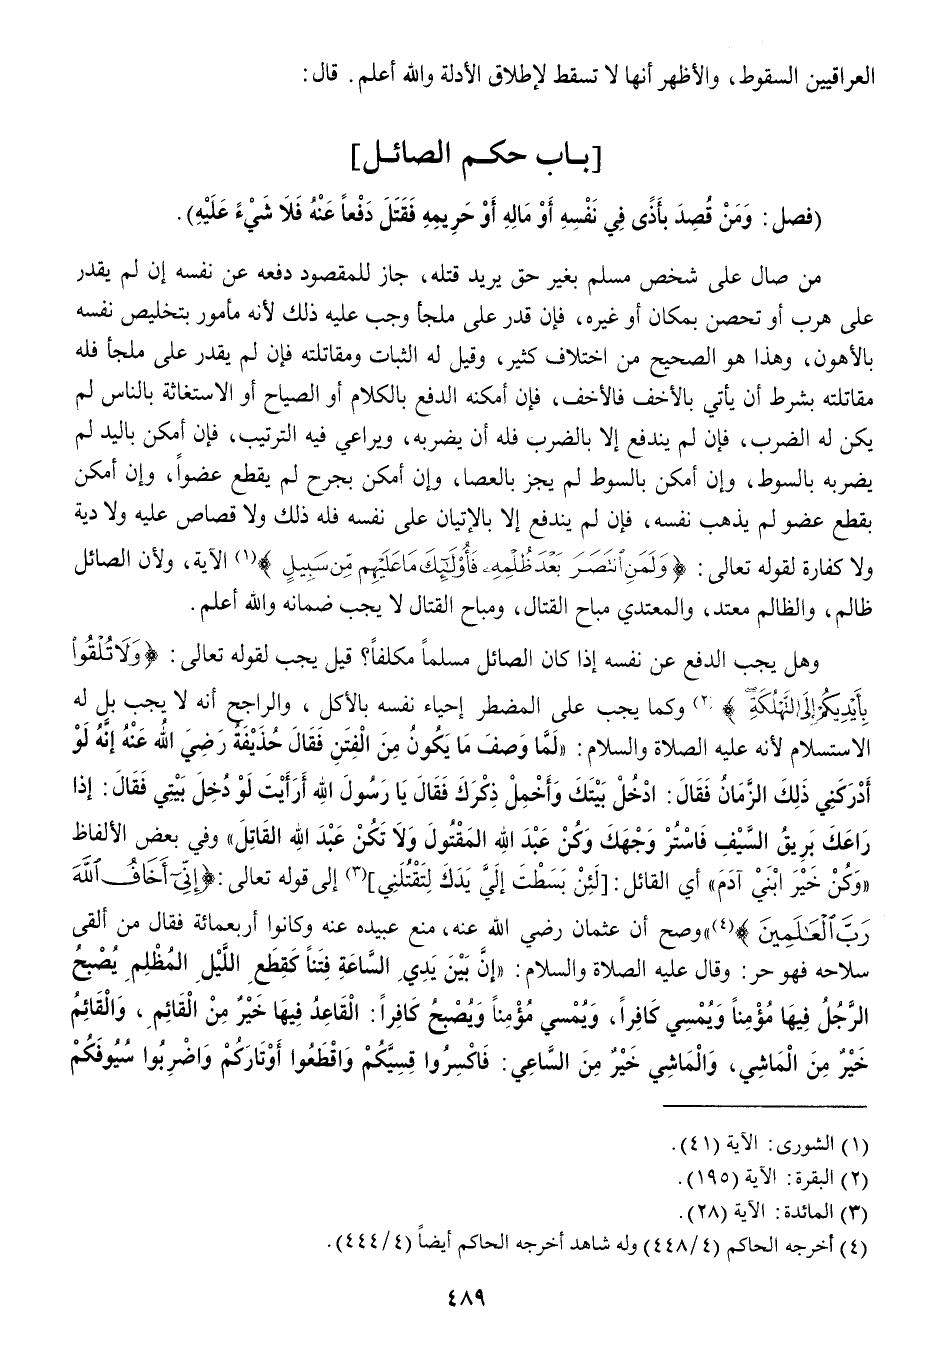 العراقيين السقوط، والأظهر أنها لا تسقط لإطلاق الأدلة والله أعلم. قال:
[باب حكم الصائل]
(فصل: وَمَنْ قُصِدَ بِأَذًى فِي نَفْسِهِ أَوْ مَالِهِ أَوْ حَرِيمِهِ فَقَتَلَ دَفْعاً عَنْهُ فَلَا شَيْءَ عَلَيْهِ).
من صال على شخص مسلم بغير حق يريد قتله، جاز للمقصود دفعه عن نفسه إن لم يقدر
على هرب أو تحصن بمكان أو غيره، فإن قدر على ملجأ وجب عليه ذلك لأنه مأمور بتخليص نفسه
بالأهون، وهذا هو الصحيح من اختلاف كثير، وقيل له الثبات ومقاتلته فإن لم يقدر على ملجأ فله
مقاتلته بشرط أن يأتي بالأخف فالأخف، فإن أمكنه الدفع بالكلام أو الصياح أو الاستغاثة بالناس لم
يكن له الضرب، فإن لم يندفع إلا بالضرب فله أن يضربه، ويراعي فيه الترتيب، فإن أمكن باليد لم
يضربه بالسوط، وإن أمكن بالسوط لم يجز بالعصا، وإن أمكن بجرح لم يقطع عضواً، وإن أمكن
بقطع عضو لم يذهب نفسه، فإن لم يندفع إلا بالإتيان على نفسه فله ذلك ولا قصاص عليه ولا دية
ولا كفارة لقوله تعالى: ﴿وَلَمَنِ ٱنتَصَرَ بَعْدَ ظُلْمِهِۦ فَأُوْلَٰٓئِكَ مَا عَلَيْهِم مِّن سَبِيلٍ﴾(١) الآية، ولأن الصائل
ظالم، والظالم معتد، والمعتدي مباح القتال، ومباح القتال لا يجب ضمانه والله أعلم.
وهل يجب الدفع عن نفسه إذا كان الصائل مسلماً مكلفاً؟ قيل يجب لقوله تعالى: ﴿وَلَا تُلْقُوا۟
بِأَيْدِيكُمْ إِلَى ٱلتَّهْلُكَةِ﴾(٢) وكما يجب على المضطر إحياء نفسه بالأكل، والراجح أنه لا يجب بل له
الاستسلام لأنه عليه الصلاة والسلام: «لَمَّا وَصَفَ مَا يَكُونُ مِنَ الْفِتَنِ فَقَالَ حُذَيْفَةُ رَضِيَ اللهُ عَنْهُ إنَّهُ لَوْ
أَدْرَكَنِي ذَلِكَ الزَّمَانُ فَقَالَ: ادْخُلْ بَيْتَكَ وَأَخْمِلْ ذِكْرَكَ فَقَالَ يَا رَسُولَ الله أَرَأَيْتَ لَوْ دُخِلَ بَيْتِي فَقَالَ: إذَا
رَاعَكَ بَرِيقُ السَّيْفِ فَاسْتُرْ وَجْهَكَ وَكُنْ عَبْدَ الله المَقْتُولَ وَلَا تَكُنْ عَبْدَ الله القَاتِلَ» وفي بعض الألفاظ
«وَكُنْ خَيْرَ ابْنَيْ آدَمَ» أي القائل: [لَئِنْ بَسَطْتَ إلَيَّ يَدَكَ لِتَقْتُلَنِي](٣) إلى قوله تعالى: ﴿إِنِّىٓ أَخَافُ ٱللَّهَ
رَبَّ ٱلْعَٰلَمِينَ﴾(٤)» وصح أن عثمان رضي الله عنه، منع عبيده عنه وكانوا أربعمائة فقال من ألقى
سلاحه فهو حر: وقال عليه الصلاة والسلام: «إنَّ بَيْنَ يَدِي السَّاعَةِ فِتَناً كَقِطَعِ اللَّيْلِ المُظْلِمِ يُصْبِحُ
الرَّجُلُ فِيهَا مُؤْمِناً وَيُمْسِي كَافِراً، وَيُمْسِي مُؤْمِناً وَيُصْبِحُ كَافِراً: الْقَاعِدُ فِيهَا خَيْرٌ مِنَ الْقَائِمِ، وَالْقَائِمُ
خَيْرٌ مِنَ الْمَاشِي، وَالْمَاشِي خَيْرٌ مِنَ السَّاعِي: فَاكْسِرُوا قِسِيَّكُمْ وَاقْطَعُوا أَوْتَارَكُمْ وَاضْرِبُوا سُيُوفَكُمْ
(١) الشورى: الآية (٤١).
(٢) البقرة: الآية (١٩٥).
(٣) المائدة: الآية (٢٨).
(٤) أخرجه الحاكم (٤/٤٤٨) وله شاهد أخرجه الحاكم أيضاً (٤/٤٤٤).
٤٨٩